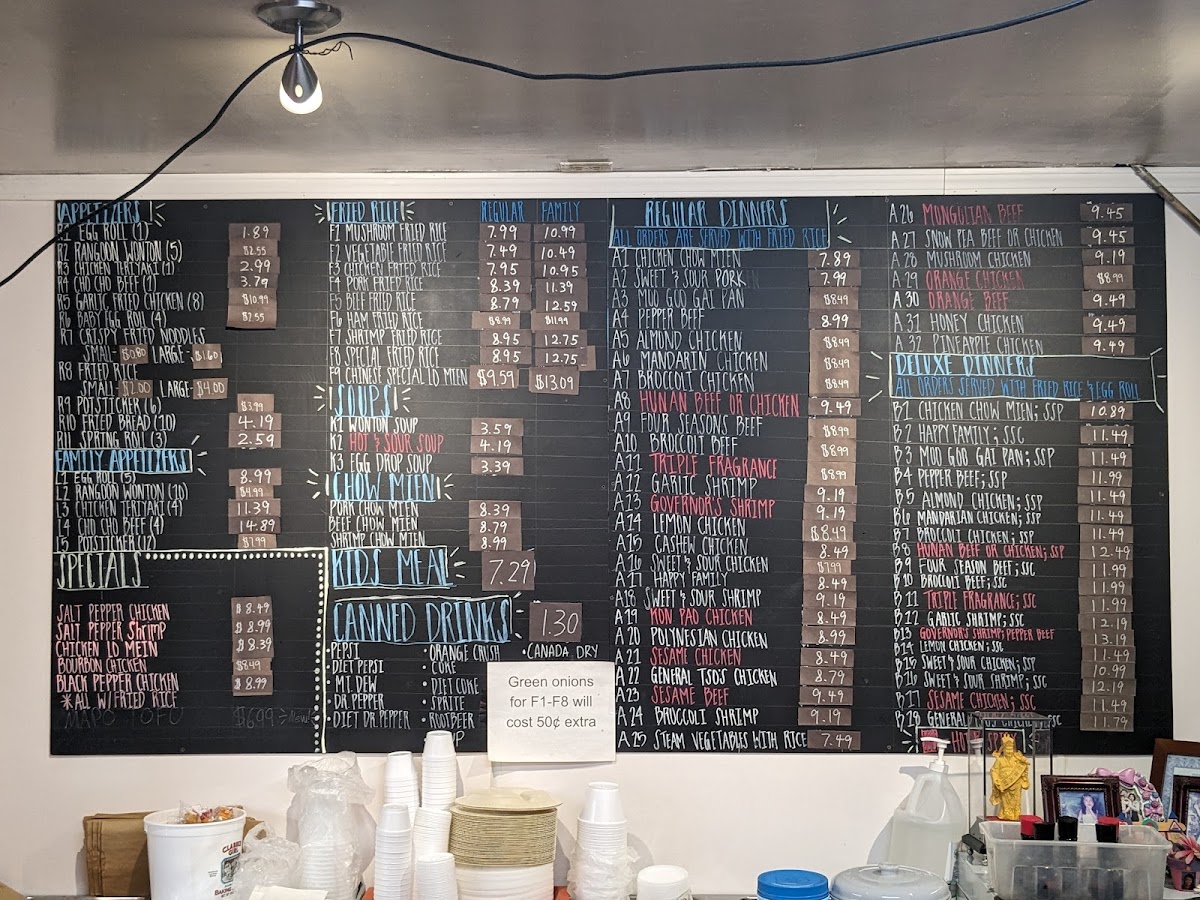 APPETIZERS
R1 EGG ROLL (1) 1.89
R2 RANGOON WONTON (5) $2.55
R3 CHICKEN TERIYAKI (1) 2.99
R4 CHO CHO BEEF (1) 3.79
R5 GARLIC FRIED CHICKEN (8) $10.99
R6 BABY EGG ROLL (4) $2.55
R7 CRISPY FRIED NOODLES
SMALL- $0.80 LARGE- $1.60
R8 FRIED RICE
SMALL- $2.00 LARGE- $4.00
R9 POTSTICKER (6) $3.99
R10 FRIED BREAD (10) 4.19
R11 SPRING ROLL (3) 2.59
FAMILY APPETIZERS
L1 EGG ROLL (5) 8.99
L2 RANGOON WONTON (10) $4.99
L3 CHICKEN TERIYAKI (4) 11.39
L4 CHO CHO BEEF (4) 14.89
L5 POTSTICKER (12) $7.99
SPECIALS
SALT PEPPER CHICKEN $8.49
SALT PEPPER SHRIMP $8.99
CHICKEN LO MEIN $8.39
BOURBON CHICKEN $8.49
BLACK PEPPER CHICKEN $8.99
*ALL W/FRIED RICE
MAPO TOFU $6.99 New!
FRIED RICE REGULAR FAMILY
F1 MUSHROOM FRIED RICE 7.99 10.99
F2 VEGETABLE FRIED RICE 7.49 10.49
F3 CHICKEN FRIED RICE 7.95 10.95
F4 PORK FRIED RICE 8.39 11.39
F5 BEEF FRIED RICE 8.79 12.59
F6 HAM FRIED RICE $8.99 $11.99
F7 SHRIMP FRIED RICE 8.95 12.75
F8 SPECIAL FRIED RICE 8.95 12.75
F9 CHINESE SPECIAL LO MIEN $9.59 $13.09
SOUPS
K1 WONTON SOUP 3.59
K2 HOT & SOUR SOUP 4.19
K3 EGG DROP SOUP 3.39
CHOW MIEN
PORK CHOW MIEN 8.39
BEEF CHOW MIEN 8.79
SHRIMP CHOW MIEN 8.99
KIDS MEAL 7.29
CANNED DRINKS 1.30
PEPSI • ORANGE CRUSH • CANADA DRY
DIET PEPSI • COKE
MT. DEW • DIET COKE
DR. PEPPER • SPRITE
• DIET DR. PEPPER • ROOTBEER
Green onions
for F1-F8 will
cost 50¢ extra
REGULAR DINNERS
ALL ORDERS ARE SERVED WITH FRIED RICE
A1 CHICKEN CHOW MIEN 7.89
A2 SWEET & SOUR PORK 7.99
A3 MOO GOO GAI PAN $8.49
A4 PEPPER BEEF 8.99
A5 ALMOND CHICKEN $8.49
A6 MANDARIN CHICKEN $8.49
A7 BROCCOLI CHICKEN $8.49
A8 HUNAN BEEF OR CHICKEN 9.49
A9 FOUR SEASONS BEEF $8.99
A10 BROCCOLI BEEF $8.99
A11 TRIPLE FRAGRANCE $8.99
A12 GARLIC SHRIMP 9.19
A13 GOVERNOR'S SHRIMP 9.19
A14 LEMON CHICKEN $8.49
A15 CASHEW CHICKEN 8.49
A16 SWEET & SOUR CHICKEN $7.99
A17 HAPPY FAMILY 8.49
A18 SWEET & SOUR SHRIMP 9.19
A19 KON PAO CHICKEN 8.49
A20 POLYNESIAN CHICKEN 8.99
A21 SESAME CHICKEN 8.49
A22 GENERAL TSO'S CHICKEN 8.79
A23 SESAME BEEF 9.49
A24 BROCCOLI SHRIMP 9.19
A25 STEAM VEGETABLES WITH RICE 7.49
A26 MONGOLIAN BEEF 9.45
A27 SNOW PEA BEEF OR CHICKEN 9.45
A28 MUSHROOM CHICKEN 9.19
A29 ORANGE CHICKEN $8.99
A30 ORANGE BEEF 9.49
A31 HONEY CHICKEN 9.49
A32 PINEAPPLE CHICKEN 9.49
DELUXE DINNERS
ALL ORDERS SERVED WITH FRIED RICE & EGG ROLL
B1 CHICKEN CHOW MIEN; SSP 10.89
B2 HAPPY FAMILY; SSC 11.49
B3 MOO GOO GAI PAN; SSP 11.49
B4 PEPPER BEEF; SSP 11.99
B5 ALMOND CHICKEN; SSP 11.49
B6 MANDARIAN CHICKEN; SSP 11.49
B7 BROCCOLI CHICKEN; SSP 11.49
B8 HUNAN BEEF OR CHICKEN; SSP 12.49
B9 FOUR SEASON BEEF; SSC 11.99
B10 BROCCOLI BEEF; SSC 11.99
B11 TRIPLE FRAGRANCE; SSC 11.99
B12 GARLIC SHRIMP; SSC 12.19
B13 GOVERNOR'S SHRIMP; PEPPER BEEF 13.19
B14 LEMON CHICKEN; SSC 11.49
B15 SWEET & SOUR CHICKEN; SSP 10.99
B16 SWEET & SOUR SHRIMP; SSC 12.19
B17 SESAME CHICKEN; SSC 11.49
B18 GENERAL 11.79